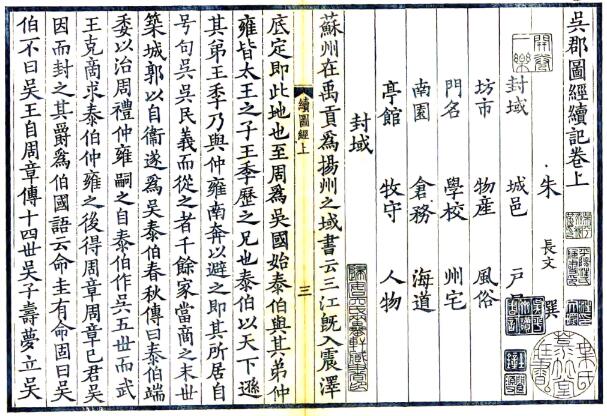 吳郡圖經續記卷上
開卷一樂
朱長文撰
封域　城邑　戶
坊市　物產　風俗
門名　學校　州宅
南園　倉務　海道
亭館　牧守　人物
封域
蘇州在禹貢爲揚州之域書云三江旣入震澤
續圖經上　三
底定即此地也至周爲吳國始泰伯與其弟仲
雍皆太王之子王季歷之兄也泰伯以天下遜
其弟王季乃與仲雍南奔以避之即其所居自
号句吳吳民義而從之者千餘家當商之末世
築城郭以自衞遂爲吳泰伯春秋傳曰泰伯端
委以治周禮仲雍嗣之自泰伯作吳五世而武
王克商求泰伯仲雍之後得周章周章已君吳
因而封之其爵爲伯國語云命圭有命固曰吳
伯不曰吳王自周章傳十四世吳子壽夢立吳